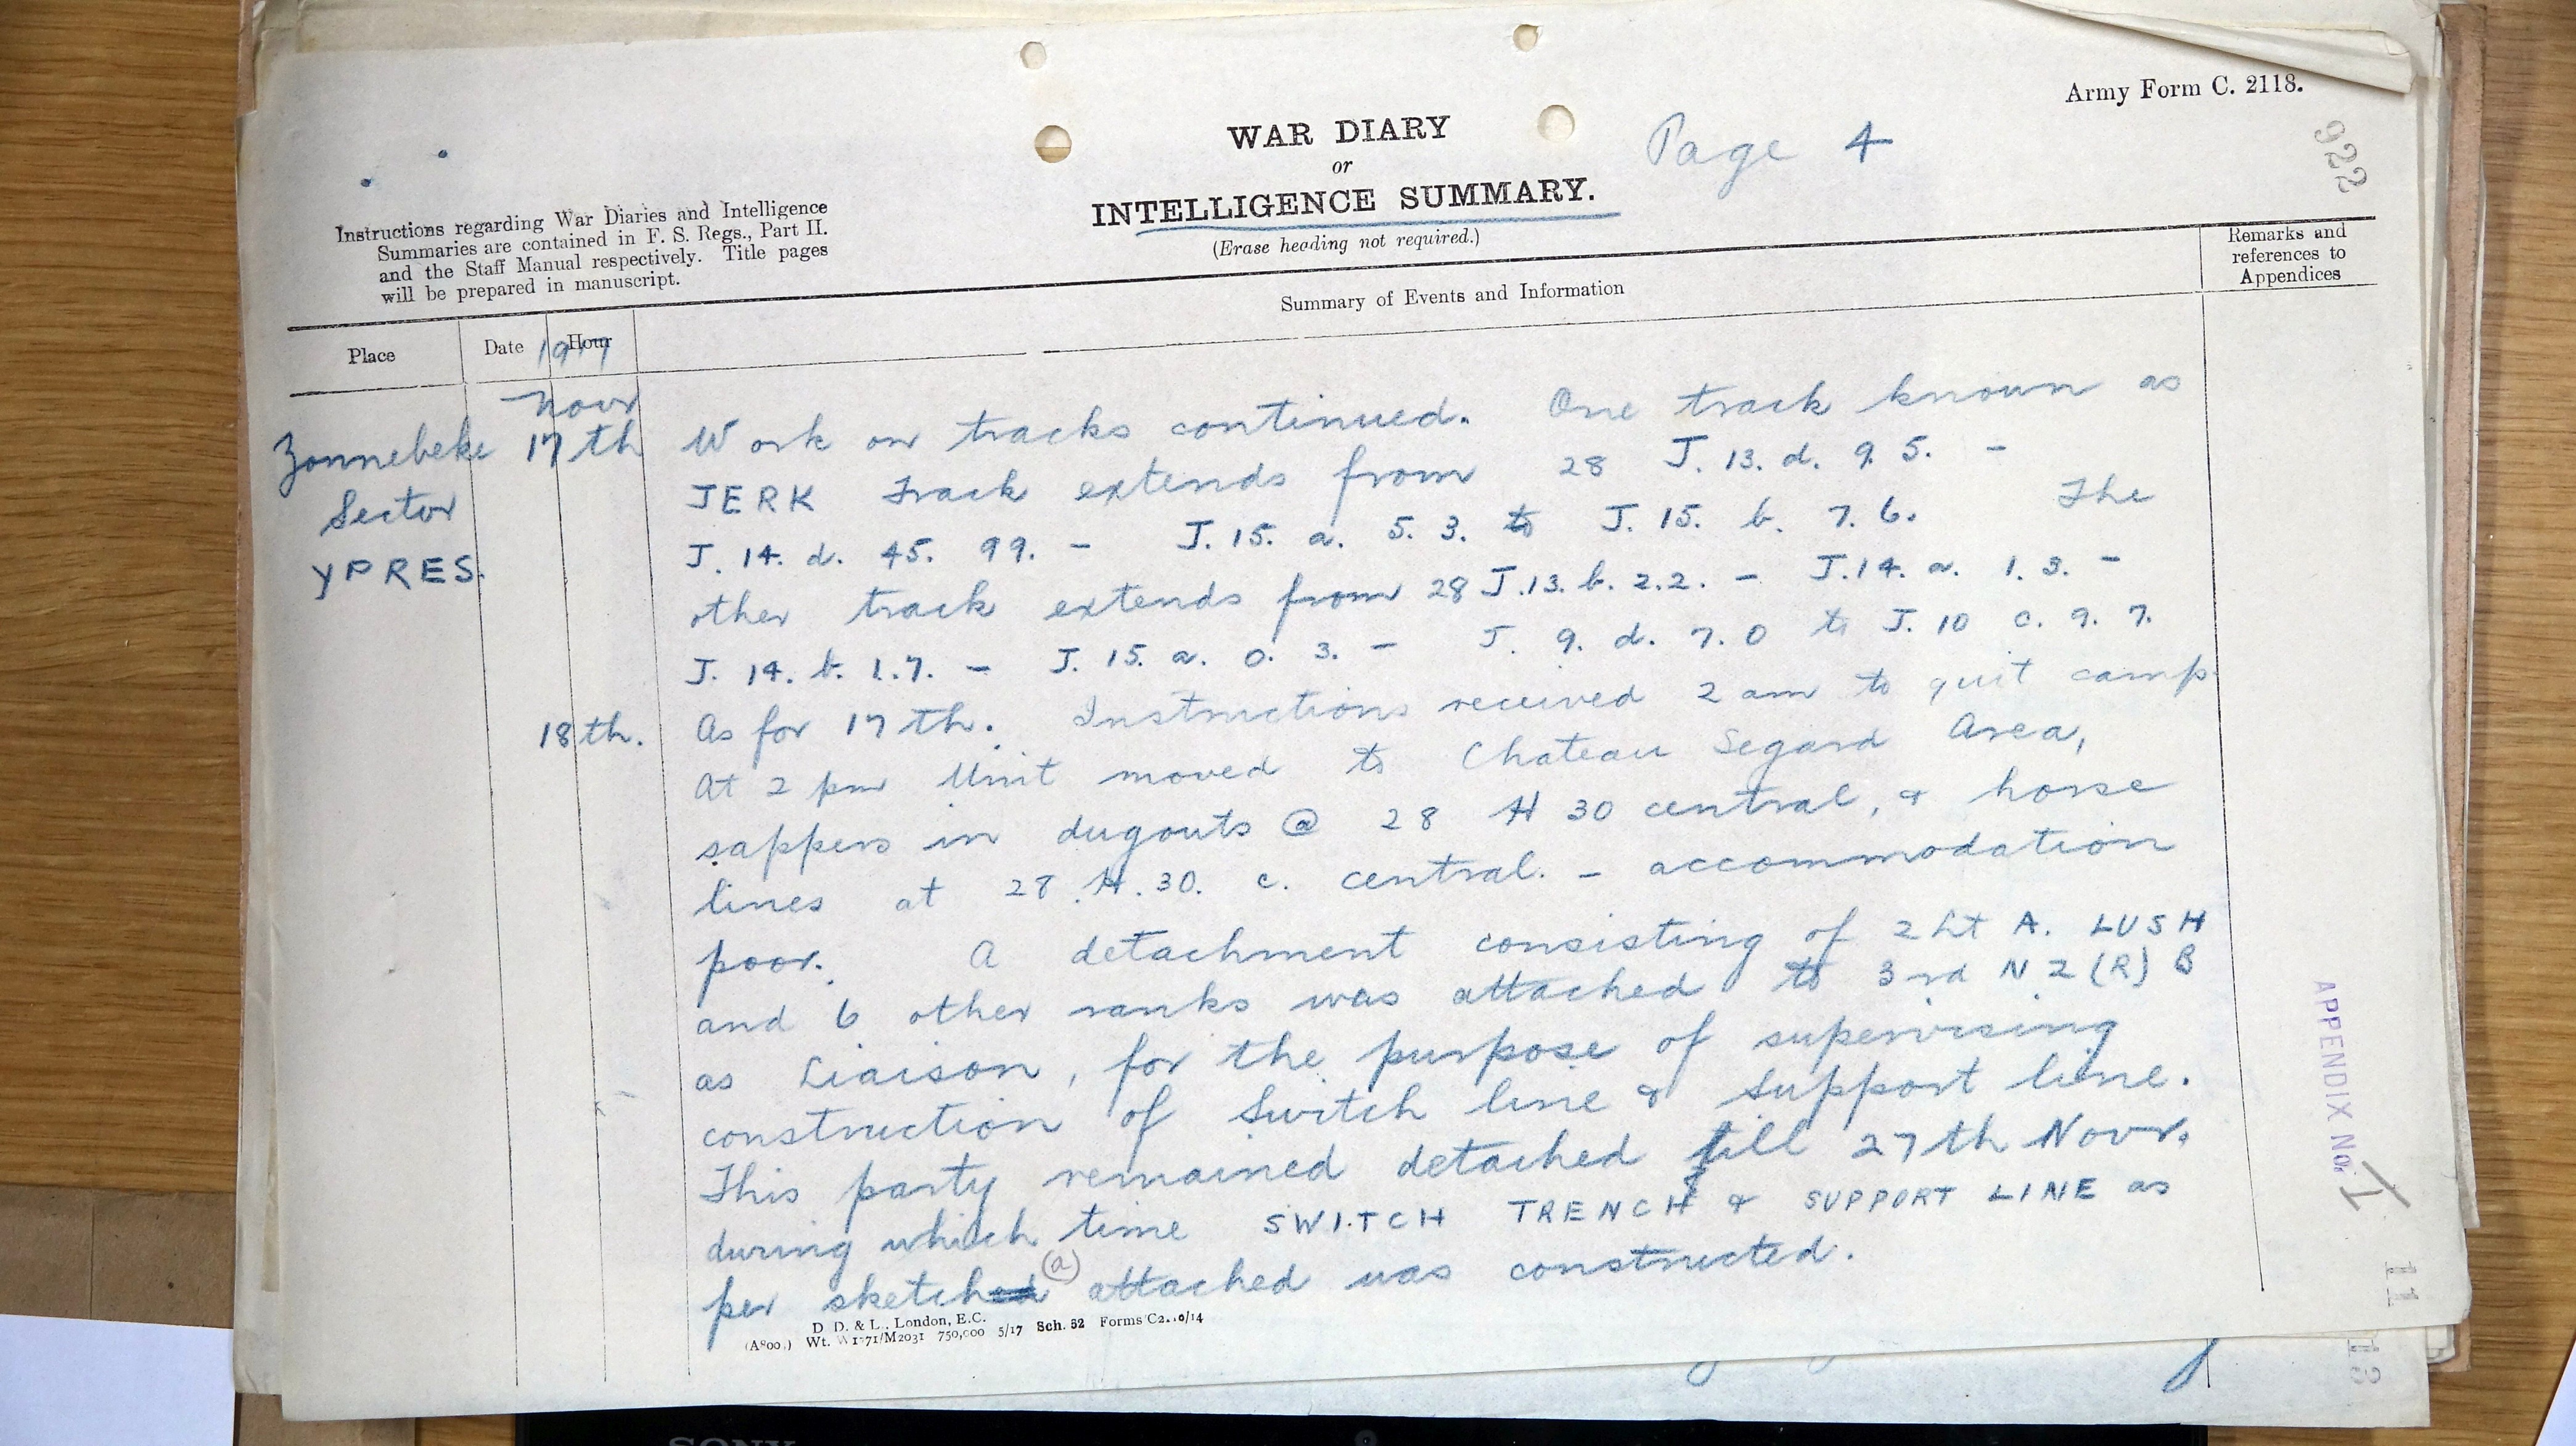 Army Form C. 2118.
WAR DIARY
or
INTELLIGENCE SUMMARY.
(Erase heading not required.)
Page 4
922
Instructions regarding War Diaries and Intelligence
Summaries are contained in F. S. Regs., Part II.
and the Staff Manual respectively. Title pages
will be prepared in manuscript.
Place
Date
Hour
1917
Summary of Events and Information
Remarks and
references to
Appendices
Zonnebeke
Sector
YPRES.
Novr
17th
Work on tracks continued. One track known as
JERK Track extends from 28 J. 13. d. 9. 5. -
J. 14. d. 45. 99. - J. 15. a. 5. 3. to J. 15. b. 7. 6. The
other track extends from 28 J.13. b. 2.2. - J.14. a. 1. 3. -
J. 14. b. 1.7. - J. 15. a. 0. 3. - J. 9. d. 7. 0 to J. 10 c. 9. 7.
18th.
As for 17th. Instructions received 2 am to quit camp.
At 2 pm Unit moved to Chateau Segard Area,
sappers in dugouts @ 28 H 30 central, & horse
lines at 28. H. 30. c. central. - accommodation
poor. A detachment consisting of 2 Lt A. LUSH
and 6 other ranks was attached to 3rd N Z (R) B
as Liaison, for the purpose of supervising
construction of Switch line & Support line.
This party remained detached till 27th Novr.
during which time SWITCH TRENCH & SUPPORT LINE as
per sketch (a) attached was constructed.
APPENDIX No. 1
11
13
D. D. & L., London, E.C.
Wt. W1771/M2031 750,000 5/17 Sch. 52
SONY